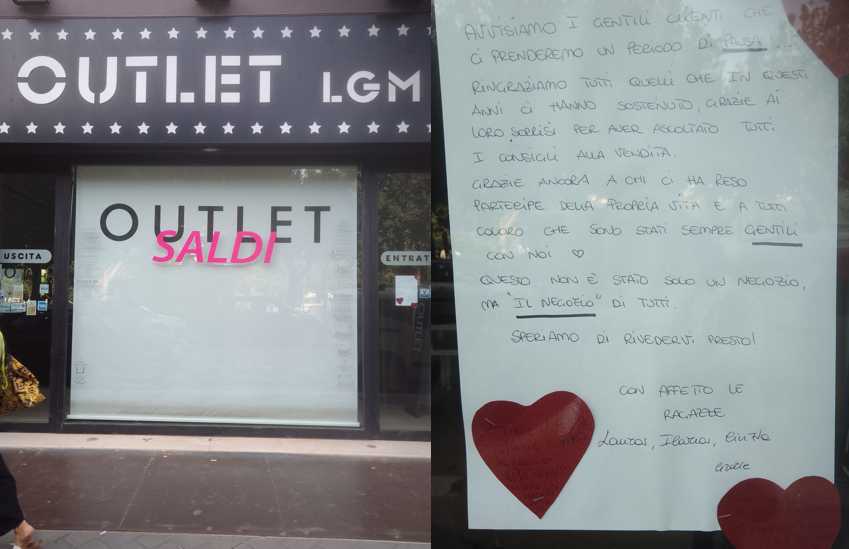 OUTLET LGM
OUTLET
SALDI
USCITA
ENTRAT
OUTLET
AVVISIAMO I GENTILI CLIENTI CHE
CI PRENDEREMO UN PERIODO DI PAUSA...
RINGRAZIAMO TUTTI QUELLI CHE IN QUESTI
ANNI CI HANNO SOSTENUTO, GRAZIE AI
LORO SORRISI PER AVER ASCOLTATO TUTTI
I CONSIGLI ALLA VENDITA.
GRAZIE ANCORA A CHI CI HA RESO
PARTECIPE DELLA PROPRIA VITA E A TUTTI
COLORO CHE SONO STATI SEMPRE GENTILI
CON NOI ♡
QUESTO NON È STATO SOLO UN NEGOZIO,
MA "IL NEGOZIO" DI TUTTI.
SPERIAMO DI RIVEDERVI PRESTO!
CON AFFETTO LE
RAGAZZE
Laura, Ilaria, Cinzia